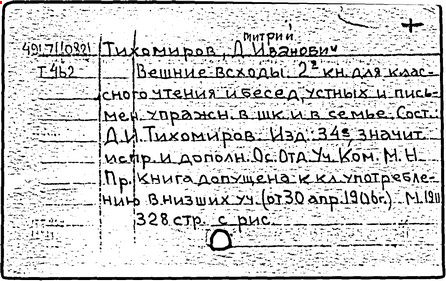 митрий
491.71(082) Тихомиров, Д. Иванович
Т 462 Вешние всходы. 2ª кн. для клас-
сного чтения и бесед, устных и пись-
мен. упражн. в шк. и в семье. Сост.
Д.И. Тихомиров. Изд. 34е значит.
испр. и дополн. Ос. Отд. Уч. Ком. М. Н.
Пр. книга допущена к кл. употребле-
нию в низших уч. (от 30 апр. 1906 г.) М. 1911
328 стр. с рис.